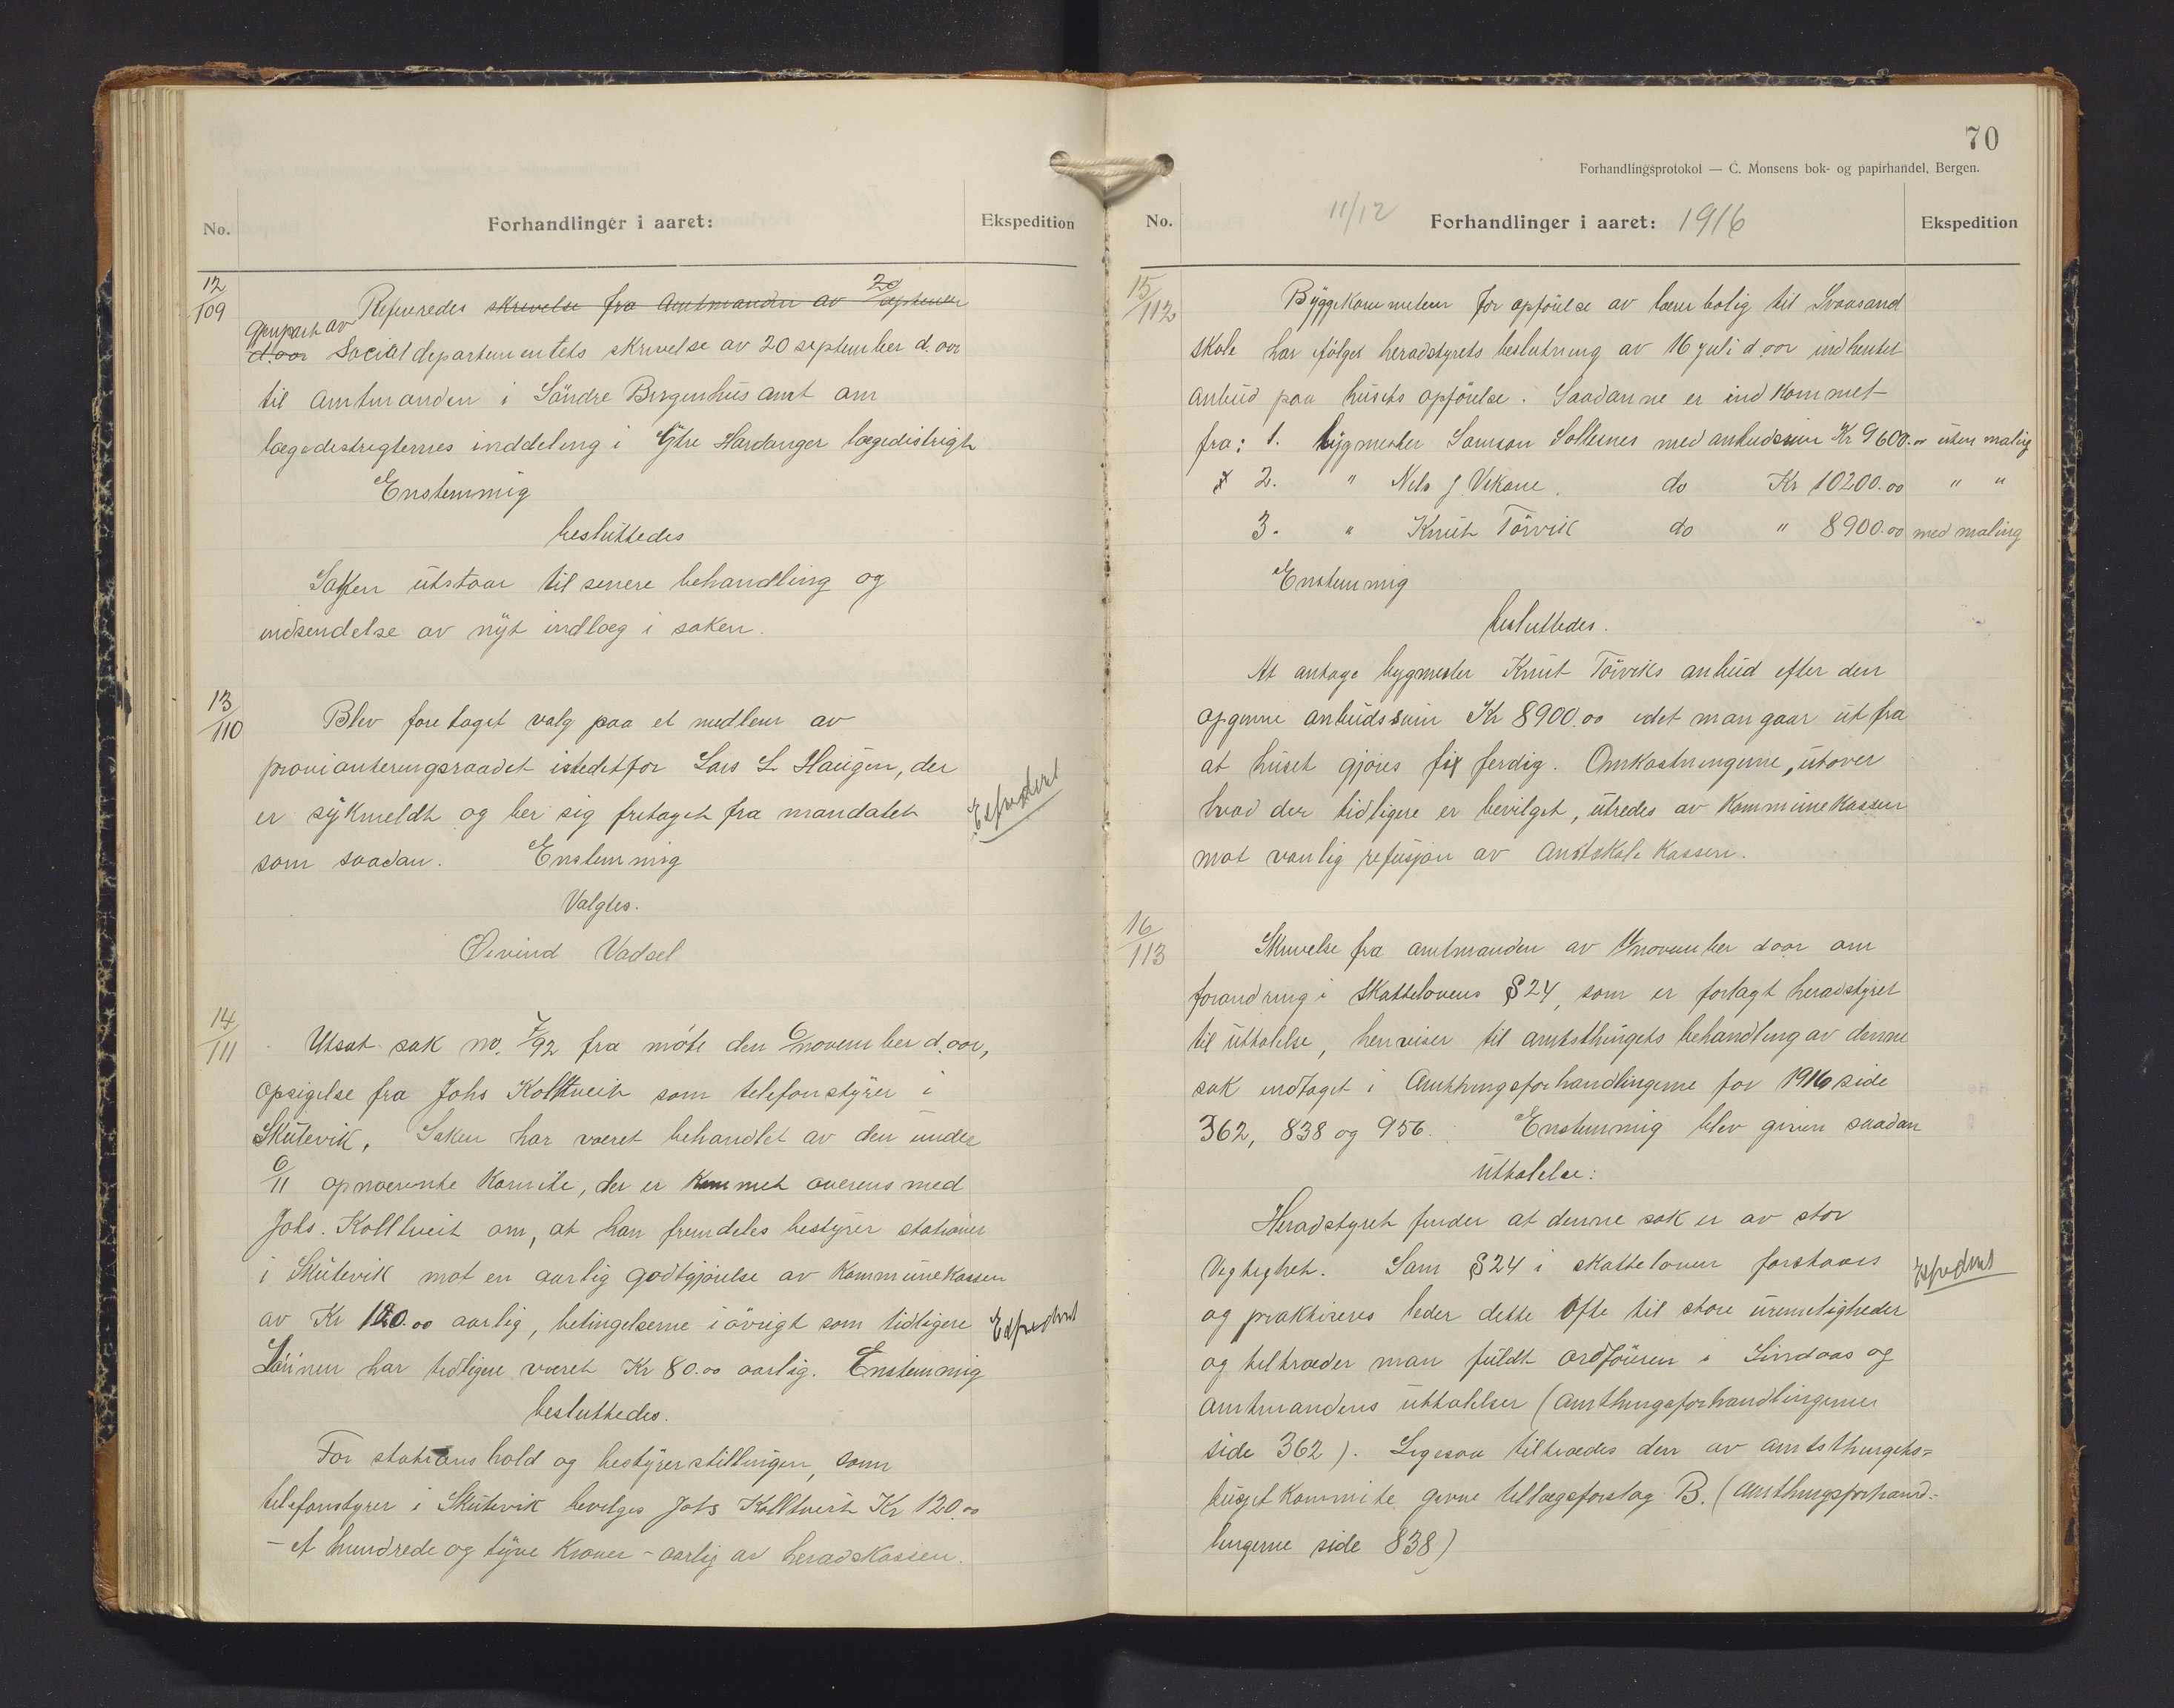 No.
Forhandlinger i aaret:
Ekspedition
12/109
Refereredes skrivelse fra Amtmanden av 20/ september
d. aar Genpart av Socialdepartementets skrivelse av 20 september d. aar
til Amtmanden i Söndre Bergenhus amt om
lægedistrigternes inddeling i Ytre Hardanger lægedistrigt
Enstemmig
besluttedes
Saken utstaar til senere behandling og
indsendelse av nyt indlæg i saken.
13/110
Blev foretaget valg paa et medlem av
provianteringsraadet istedetfor Lars L. Haugen, der
er sykmeldt og ber sig fritaget fra mandatet
som saadan. Enstemmig
Ekspedert
Valgtes.
Øivind Vadsel
14/111
Utsat sak no. 7/92 fra möte den 6/november d. aar,
opsigelse fra Johs Kolltveit som telefonstyrer i
Skutevik. Saken har været behandlet av den under
6/11 opnævnte Komite, der er kommet overens med
Johs. Kolltveit om, at han fremdeles bestyrer stationen
i Skutevik mot en aarlig godtgjörelse av Kommunekassen
av Kr 120.00 aarlig, betingelserne iövrigt som tidligere
Ekspedert
Lönnen har tidligere været Kr 80.00 aarlig. Enstemmig
besluttedes.
For stationshold og bestyrerstillingen, som
telefonstyrer i Skutevik bevilges Johs Kolltveit Kr 120.00
- et hundrede og tyve Kroner - aarlig av heradskassen.
70
Forhandlingsprotokol — C. Monsens bok- og papirhandel, Bergen.
No.
11/12 Forhandlinger i aaret: 1916
Ekspedition
15/112
Byggekommiteen for opförelse av lærerbolig til Svaasand
skole har ifölge heradstyrets beslutning av 16 juli d. aar indhentet
anbud paa husets opförelse. Saadanne er indkommet
fra: 1. bygmester Samson Sollesnes med anbudssum Kr 9600.00 uten maling
2. " Nils J. Vikane. do Kr 10200.00 " "
3. " Knut Törvik do " 8900.00 med maling
Enstemmig
besluttedes.
At antage bygmester Knut Törviks anbud efter den
opgivne anbudssum Kr 8900.00 idet man gaar ut fra
at huset gjöres fix ferdig. Omkostningerne, utover
hvad der tidligere er bevilget, utredes av Kommunekassen
mot vanlig refusjon av Amtskolekassen.
16/113
Skrivelse fra amtmanden av november d aar om
forandring i Skattelovens §24, som er forlagt heradstyret
til uttalelse, henviser til amtsthingets behandling av denne
sak indtaget i Amtthingsforhandlingerne for 1916 side
362, 838 og 956. Enstemmig blev given saadan
uttalelse:
Heradstyret finder at denne sak er av stor
Vegtighet. Som §24 i skatteloven forstaaes
Ekspedert
og praktiseres leder dette ofte til store urimeligheder
og tiltræder man fuldt ordföreren i Lindaas og
amtmandens uttalelser (amtthingsforhandlingernes
side 362). Ligesaa tiltrædes den av amtsthingets=
budjetkommite givne tillægsforslag B. (amtthingsforhand-
lingerne side 838)